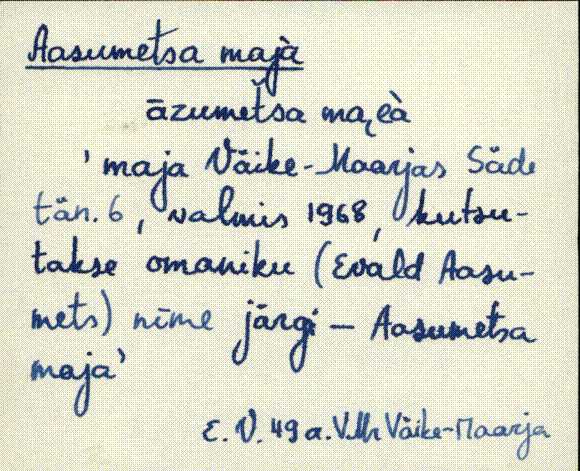 Aasumetsa majà
āzumet̆sa mai̯eà
'maja Väike-Maarjas Säde
tän. 6, valmis 1968, kutsu-
takse omaniku (Evald Aasu-
mets) nime järgi – Aasumetsa
maja'
E. V. 49 a. VMr Väike-Maarja